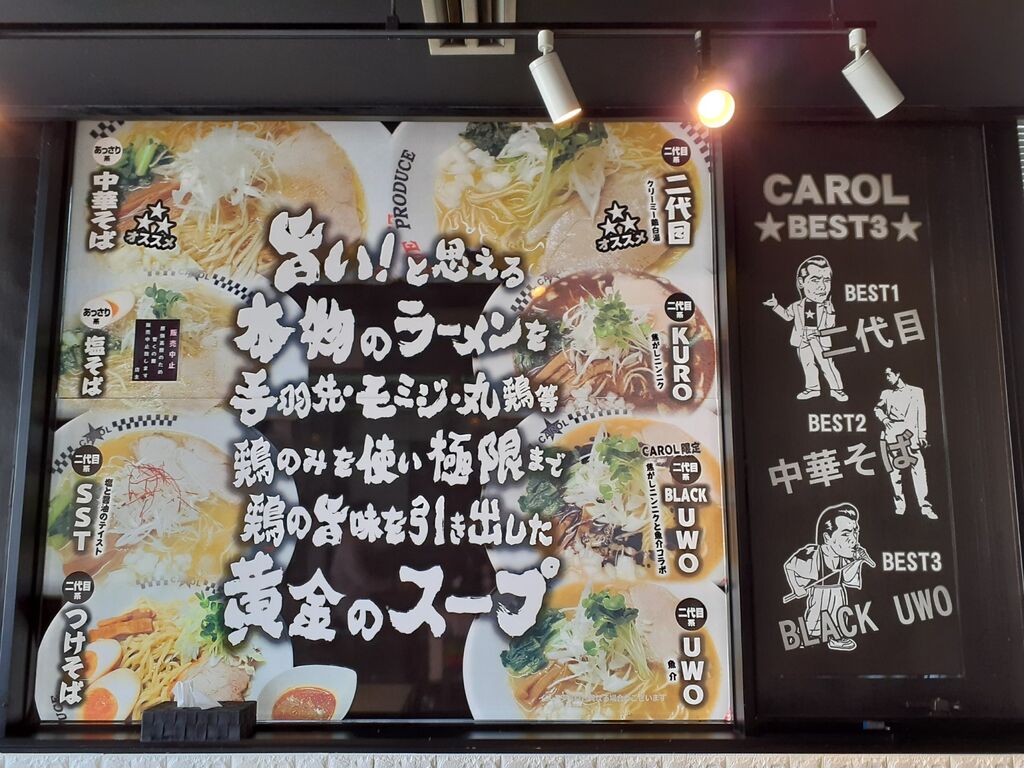 あっさり系
中華そば
オススメ
PRODUCE
二代目系
二代目
クリーミー鶏白湯
オススメ
旨い!と思える
本物のラーメンを
手羽先・モミジ・丸鶏等
鶏のみを使い極限まで
鶏の旨味を引き出した
黄金のスープ
あっさり系
塩そば
販売中止
二代目系
SST
塩と醤油のテイスト
二代目系
つけそば
二代目系
KURO
焦がしニンニク
CAROL限定
二代目系
BLACK
UWO
焦がしニンニクと魚介コラボ
二代目系
UWO
魚介
CAROL
★BEST3★
BEST1
二代目
BEST2
中華そば
BEST3
BLACK UWO